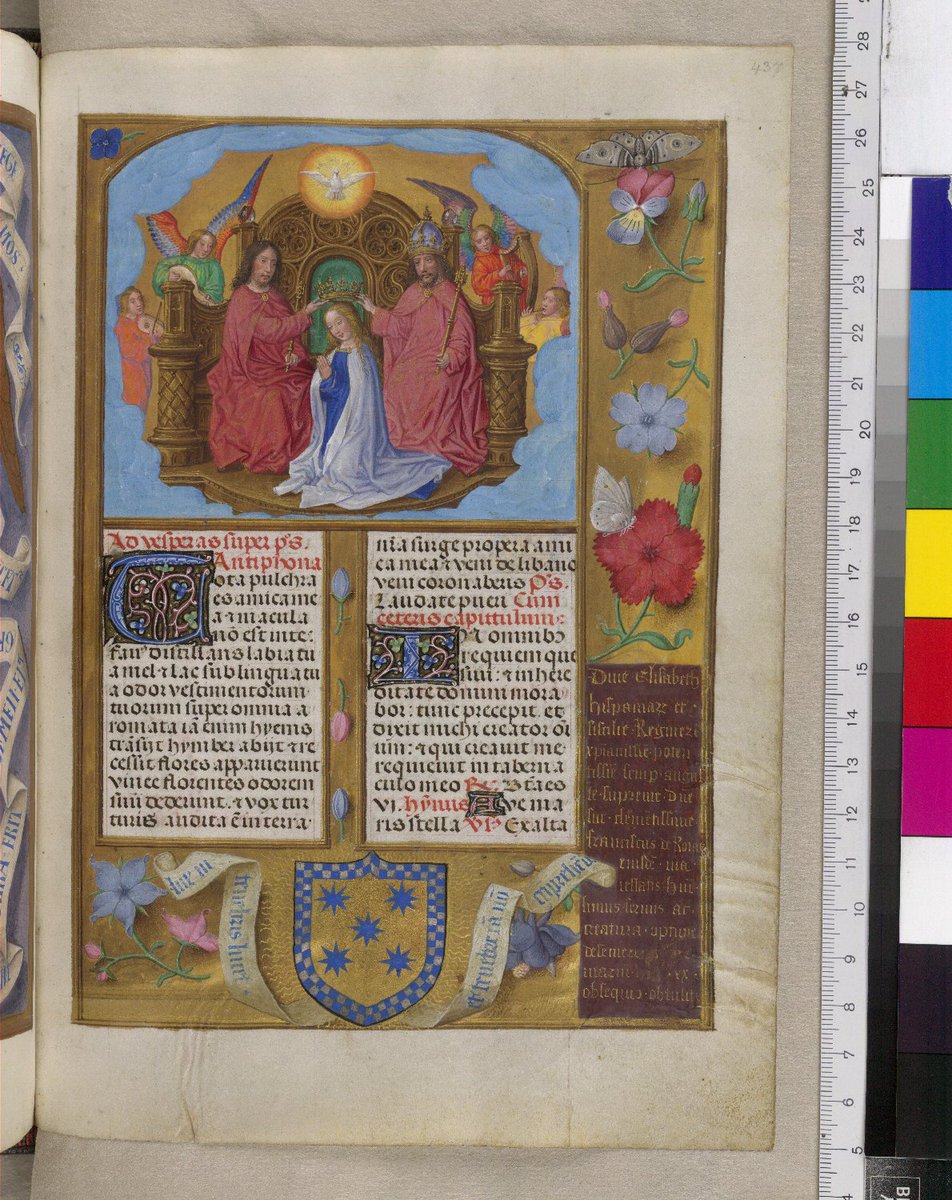 437
Ad vesperas super ps.
Antiphona
Tota pulchra
es amica me
a et macula
nō est in te:
fauꝰ distillans labia tu
a mel et lac sub lingua tu
a odor vestimentorum
tuorum super omnia a
romata iā enim hyems
trāsijt hymber abijt et re
cessit flores apparuerunt
vinee florentes odorem
suū dederunt. et vox tur
turis audita ē in terra.
nr̄a surge propera ami
ca mea et veni de libano
veni coronaberis Ps.
Laudate pueri Cum
ceteris capitulum:
In omnibꝰ
requiem que
siui: et in here
ditate domini mora
bor: tunc precepit. et
dixit michi creator oī
um: et qui creauit me
requieuit in taberna
culo meo Rx. Deo
Hymnus Aue ma
ris stella Vs. Exalta
Diue Elisabeth
hispaniarꝫ et
sicilie Regine
Franciscus de Roias
obsequio obtulit
lux in
tenebris lucet
et tenebre eā nō
cōprehēderūt
28
27
26
25
24
23
22
21
20
19
18
17
16
15
14
13
12
11
10
9
8
7
6
5